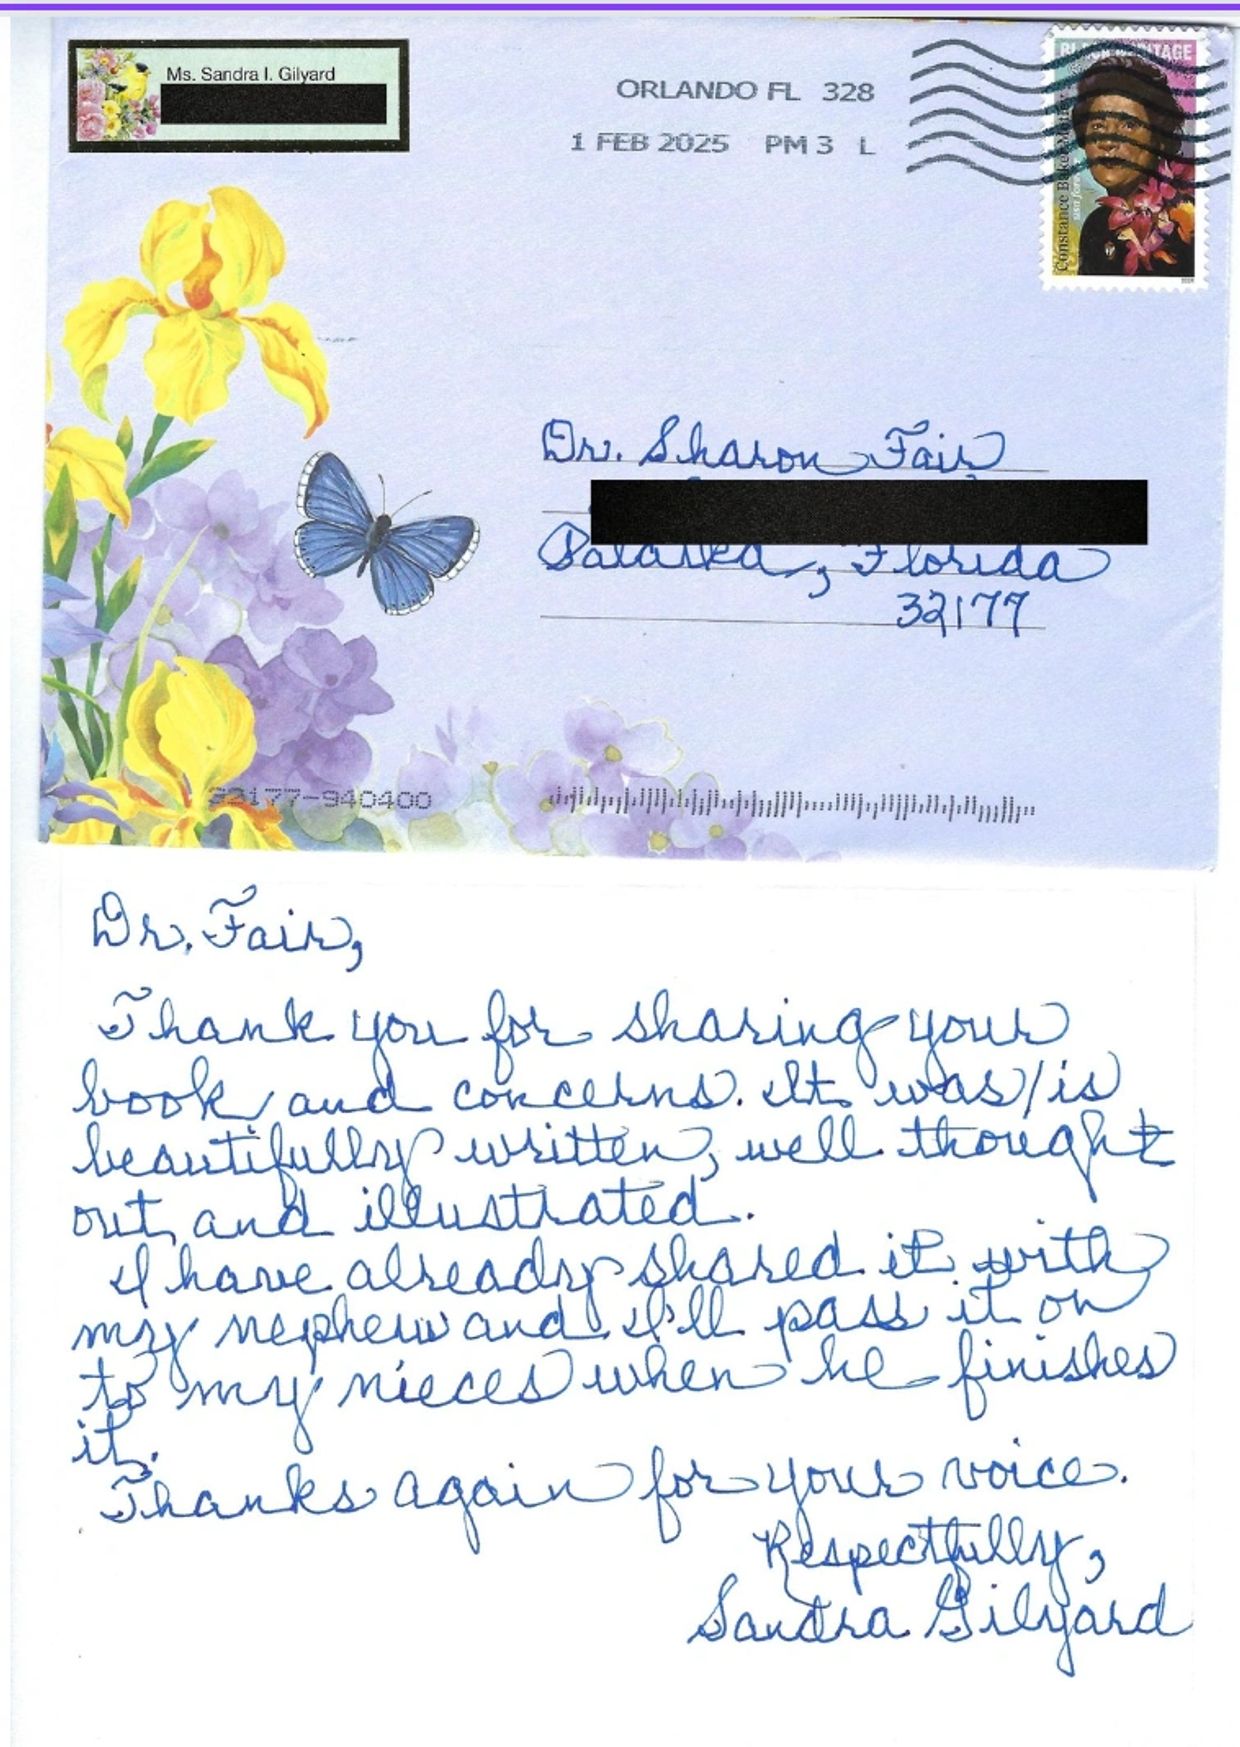 Ms. Sandra I. Gilyard
ORLANDO FL 328
1 FEB 2025 PM 3 L
BLACK HERITAGE
Constance Baker Motley
Dr. Sharon Fair
Palatka, Florida
32177
32177-940400
Dr. Fair,
Thank you for sharing your
book and concerns. It was/is
beautifully written, well thought
out, and illustrated.
I have already shared it with
my nephew and I'll pass it on
to my nieces when he finishes
it.
Thanks again for your voice.
Respectfully,
Sandra Gilyard